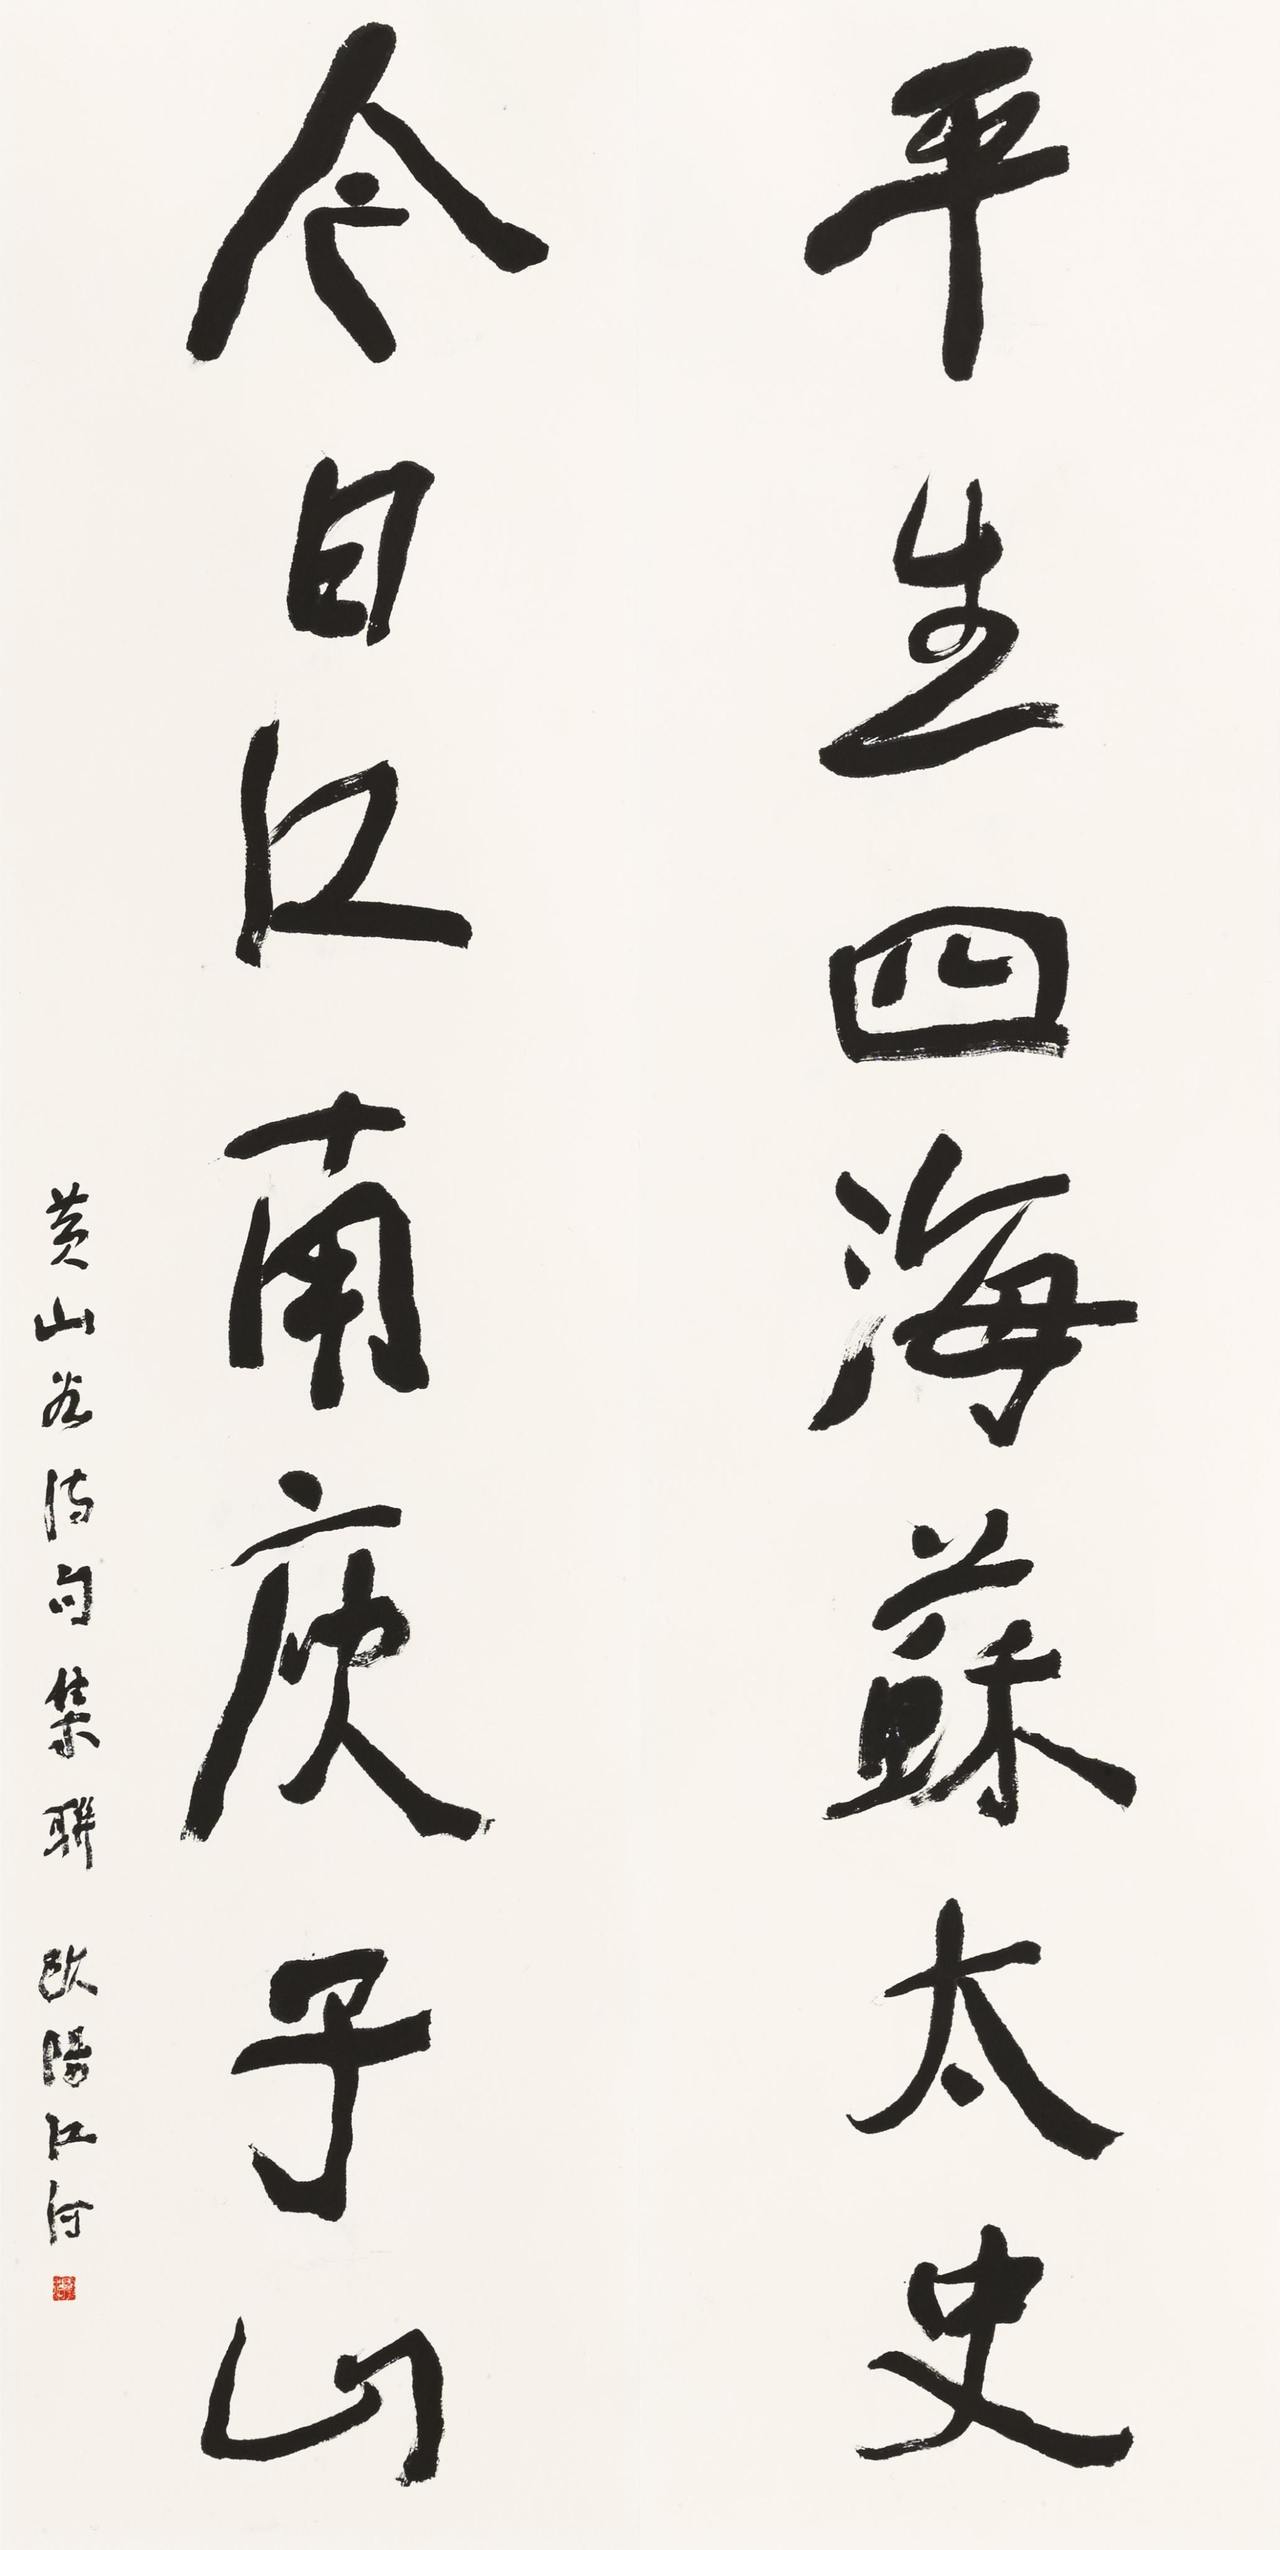 平生四海蘇太史
今日江南庾子山
黄山谷诗句集聯 欧陽江河